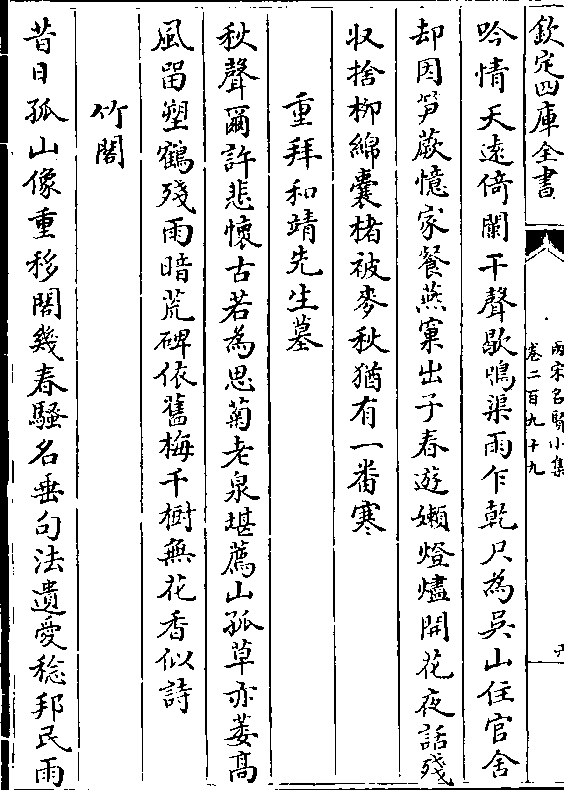 欽定四庫全書
兩宋名賢小集
卷二百九十九
吟情天遠倚闌干聲歇鳴渠雨乍乾只為吳山住官舍
却因笋蕨憶家餐燕窠出子春遊嬾燈燼開花夜話殘
収捨柳綿囊楮被麥秋猶有一番寒
重拜和靖先生墓
秋聲爾許悲懷古若為思菊老泉堪薦山孤草亦萎高
風留塑鶴殘雨暗荒碑依舊梅千樹無花香似詩
竹閣
昔日孤山像重移閣幾春騷名垂句法遺愛稔邦民雨